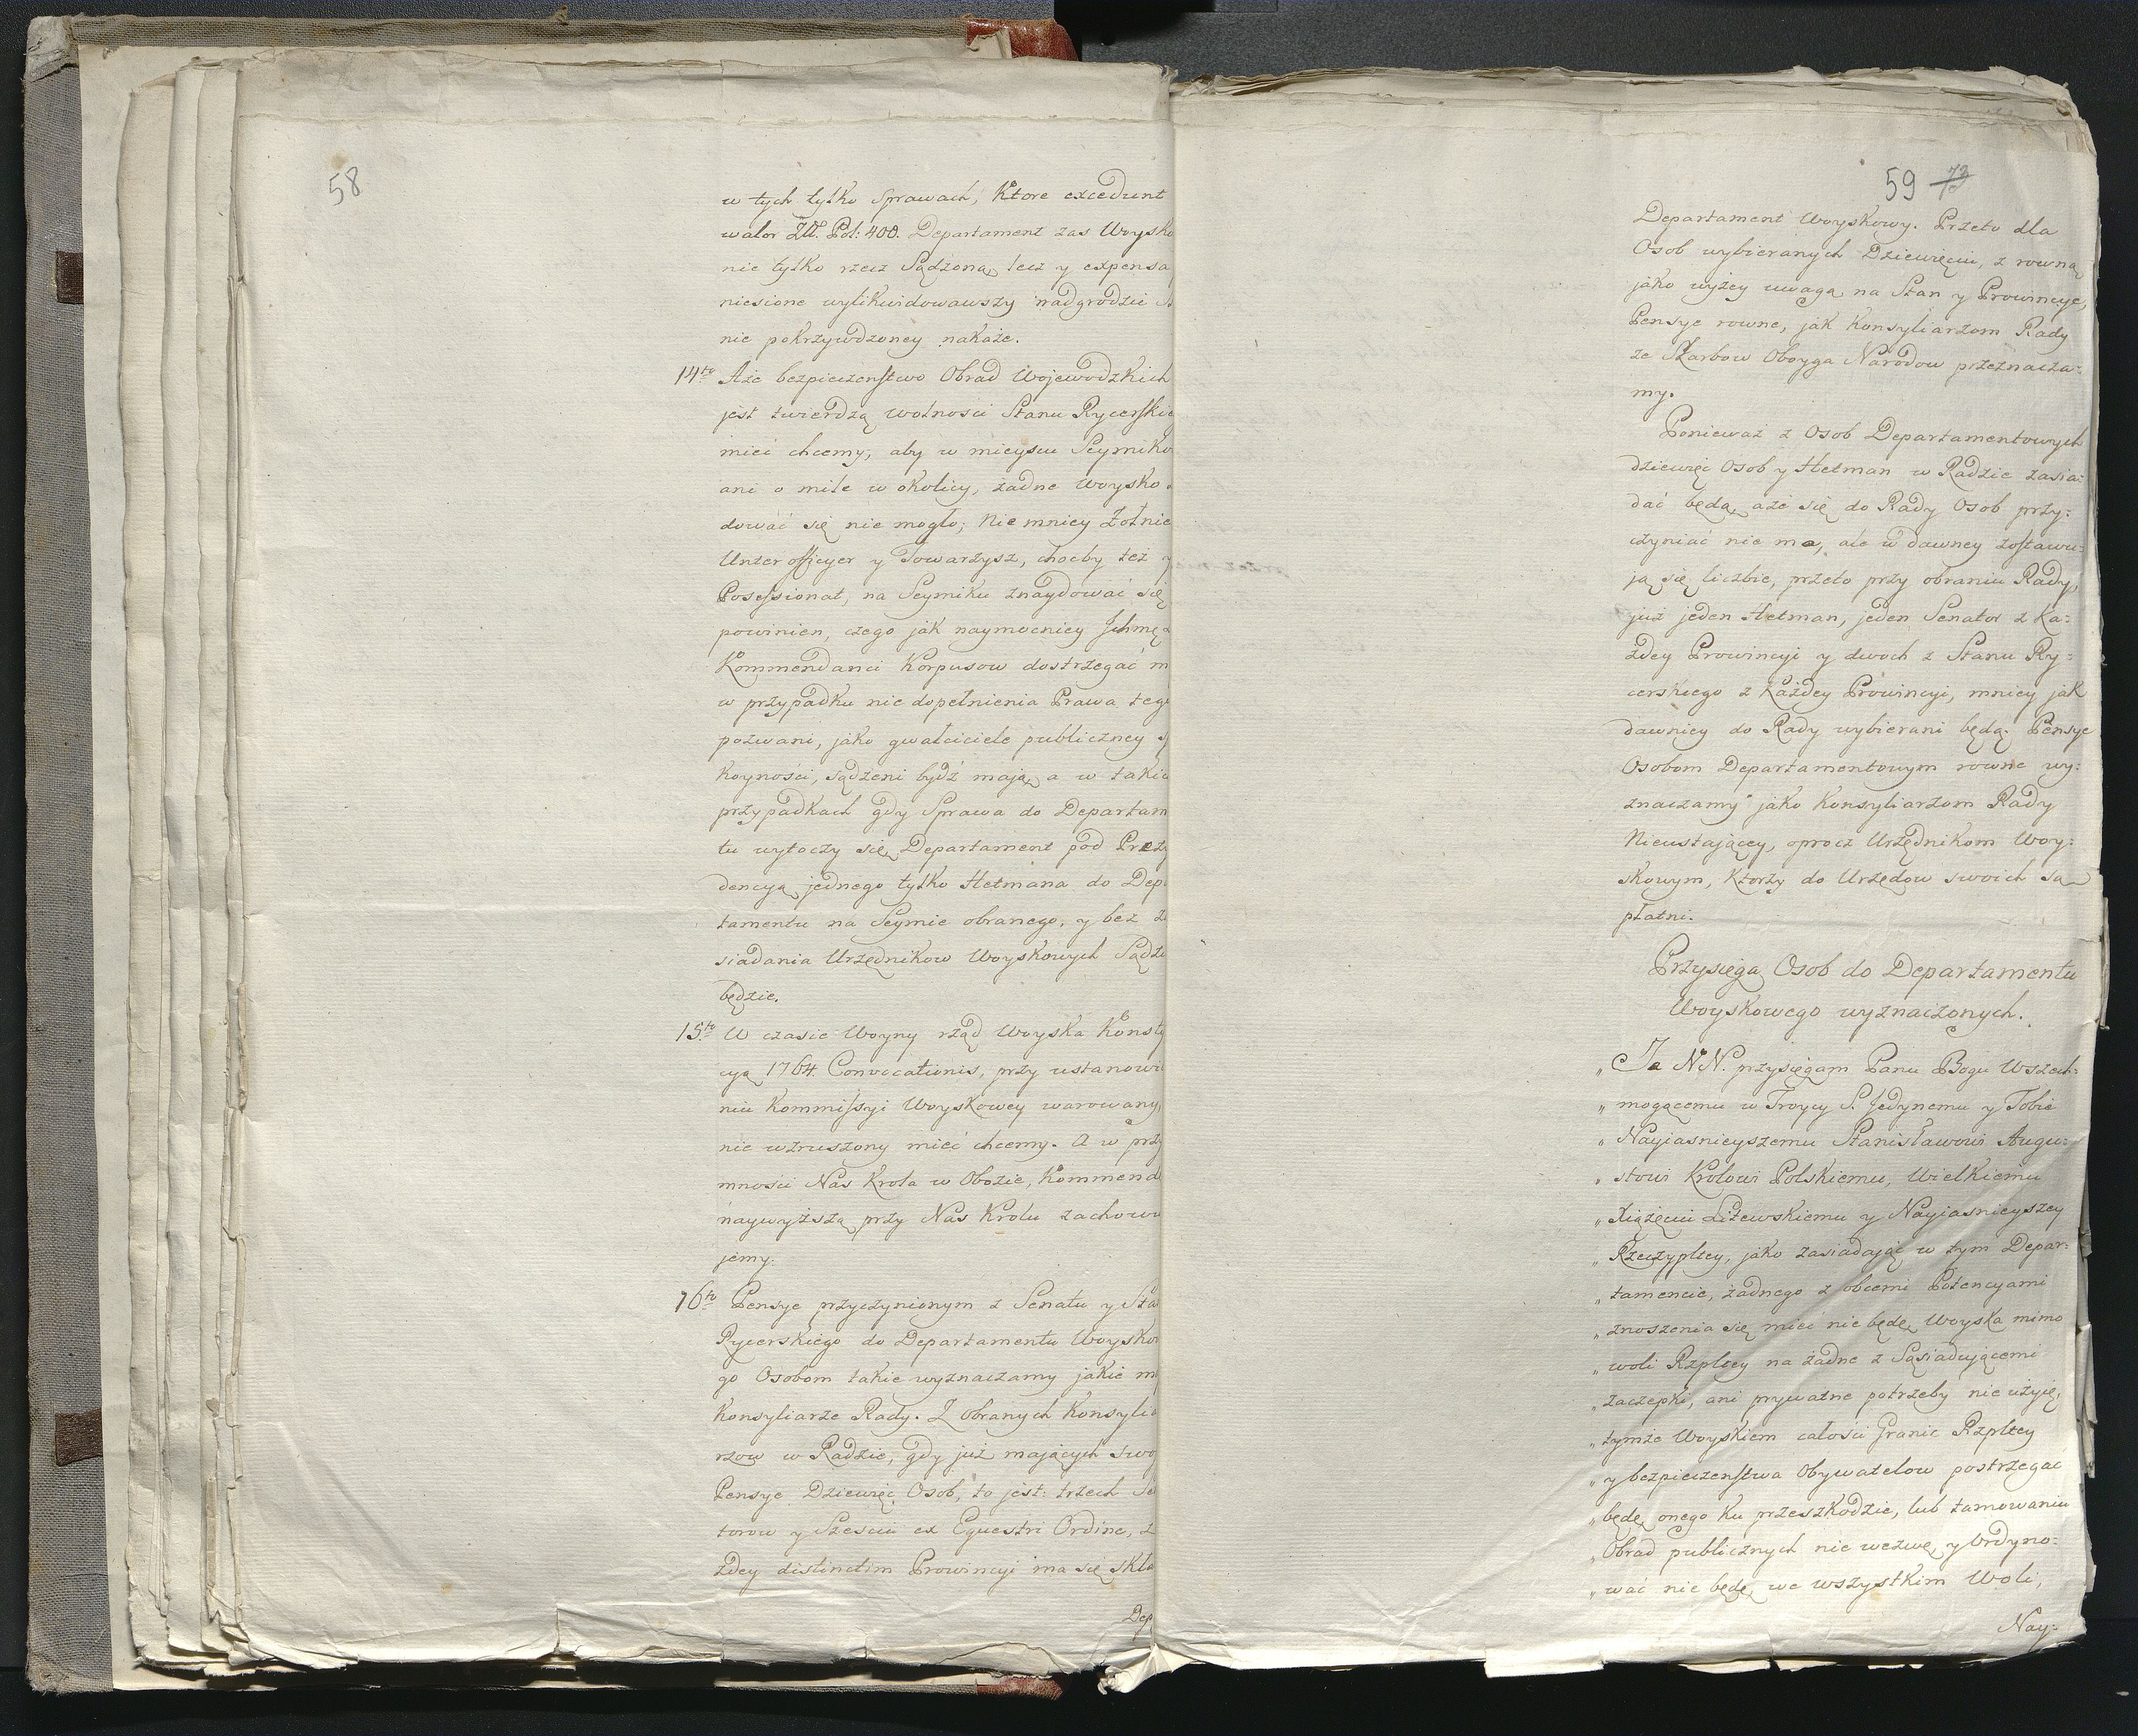 58
w tych tylko Sprawach, Ktore excedunt
walor Złł. Pol: 400. Departament zas Woysko
nie tylko rzecz Sądzoną, lecz y expensa
niesione wylikwidowawszy nadgrodzic
nie pokrzywdzoney nakaże.
14to Aże bezpieczenstwo Obrad Wojewodzkich
jest twierdzą wolnosci Stanu Rycerskie
mieć chcemy, aby w mieyscu Seymiko
ani o mile w okolicy, żadne Woysko
dować się nie mogło; Nie mniey Żołnie
Unterofficyer y Towarzysz, choćby też y
Possessionat, na Seymiku znaydować się
powinien, czego jak naymocniey Ichmć
Kommendanci Korpusow dostrzegać m
w przypadku nie dopełnienia Prawa teg
pozwani, jako gwałciciele publiczney
koyności, sądzeni bydź mają, a w takic
przypadkach gdy Sprawa do Departam
tu wytoczy się, Departament pod Prezy
dencyą jednego tylko Hetmana do Dep
tamentu na Seymie obranego, y bez za
siadania Urzędnikow Woyskowych Sądzi
będzie.
15to W czasie Woyny rząd Woyska Konsty
cyą 1764. Convocationis, przy ustanowi
niu Kommissyi Woyskowey warowany,
nie wzruszony mieć chcemy. A w przy
mnosci Nas Krola w Obozie, Kommend
naywyższą przy Nas Krolu zachowu
jemy.
16to Pensye przyczynionym z Senatu y Sta
Rycerskiego do Departamentu Woysko
go Osobom takie wyznaczamy jakie m
Konsyliarze Rady. Z obranych Konsylia
rzow w Radzie, gdy już mających swo
Pensye Dziewięć Osob, to jest: trzech Se
torow y Sześciu ex Equestri Ordine, z
żdey distinctim Prowincyi ma się skła
Dep
59 73
Departament Woyskowy. Przeto dla
Osob wybieranych Dziewięciu, z rowną
jako wyżey uwagą na Stan y Prowincye,
Pensye rowne, jak Konsyliarzom Rady
ze Skarbow Oboyga Narodow przeznacza:
my.
Ponieważ z Osob Departamentowych
dziewięć Osob y Hetman w Radzie zasia:
dać będą, aże się do Rady Osob przy:
czyniać nie ma, ale w dawney zostawu:
ją się liczbie, przeto przy obraniu Rady,
już jeden Hetman, jeden Senator z Ka:
żdey Prowincyi y dwoch z Stanu Ry:
cerskiego z Każdey Prowincyi, mniey jak
dawniey do Rady wybierani będą. Pensye
Osobom Departamentowym rowne wy:
znaczamy jako Konsyliarzom Rady
Nieustającey, oprocz Urzędnikom Woy:
skowym, Ktorzy do Urzędow swoich są
płatni.
Przysięga Osob do Departamentu
Woyskowego wyznaczonych.
„ Ja NN. przysięgam Panu Bogu Wszech:
„ mogącemu w Troycy S. Jedynemu y Tobie
„ Nayiasnieyszemu Stanisławowi Augu:
„ stowi Krolowi Polskiemu, Wielkiemu
„ Xiążęciu Litewskiemu y Nayiasnieyszey
„ Rzeczypltey, jako zasiadając w tym Depar:
„ tamencie, żadnego z obcemi Potencyami
„ znoszenia się mieć nie będę, Woyska mimo
„ woli Rzpltey na żadne z Sąsiadującemi
„ zaczepki, ani prywatne potrzeby nie użyię,
„ tymże Woyskiem całości Granic Rzpltey
„ y bezpieczenstwa Obywatelow postrzegać
„ będę, onego ku przeszkodzie, lub tamowaniu
„ Obrad publicznych nie wezwę, y Ordyno:
„ wać nie będę, we wszystkim Woli,
Nay: